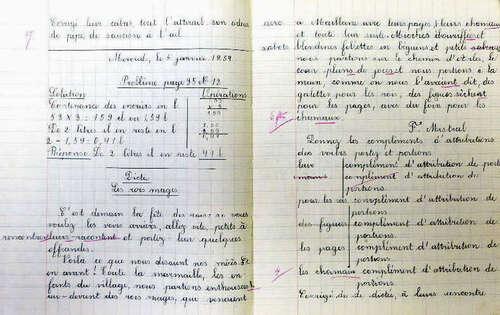 Corrigé leur cabas, tout l'attirail son odeur
de pipe de saucisse à l'ail.
9
Mercredi, le 5 janvier 1959
Problème page 95 N° 12
Solution Opérations
Contenance des encriers en l
53 X 3 = 159 cl ou 1,59 l
De 2 litres il en reste en l
2 - 1,59 = 0,41 l
Réponse De 2 litres il en reste 41 l
Dictée
Les rois mages
C'est demain la fête des rois si vous
voulez les voir arriver, allez vite, petits à
rencontre leurs racontent et portez leur quelques
offrandes.
Voilà ce que nous disaient nos mères Et
en avant! Toute la marmaille, les en
fants du village, nous partions enthousiastes
au-devant des rois mages, qui venaient
à Maillane avec leurs pages leurs chameaux
et toute leur suite.
blondines follettes en béguins et petits sabots
nous partions sur le chemin d'Arles, le
cœur plein de joie et nous portions à la
main, comme on nous l'avait dit, des
galettes pour les rois, des figues sèches
pour les pages, avec du foin pour les
chameaux.
F. Mistral
Donnez les compléments d'attributions
des verbes portez et portions
leur complément d'attribution de portez
complément d'attribution de
portions
pour les rois complément d'attribution de
portions
des figues complément d'attribution de
portions.
les pages complément d'attribution de
portions.
4 les chameaux complément d'attribution de
portions.
Corrigé de la dictée, à leurs rencontre